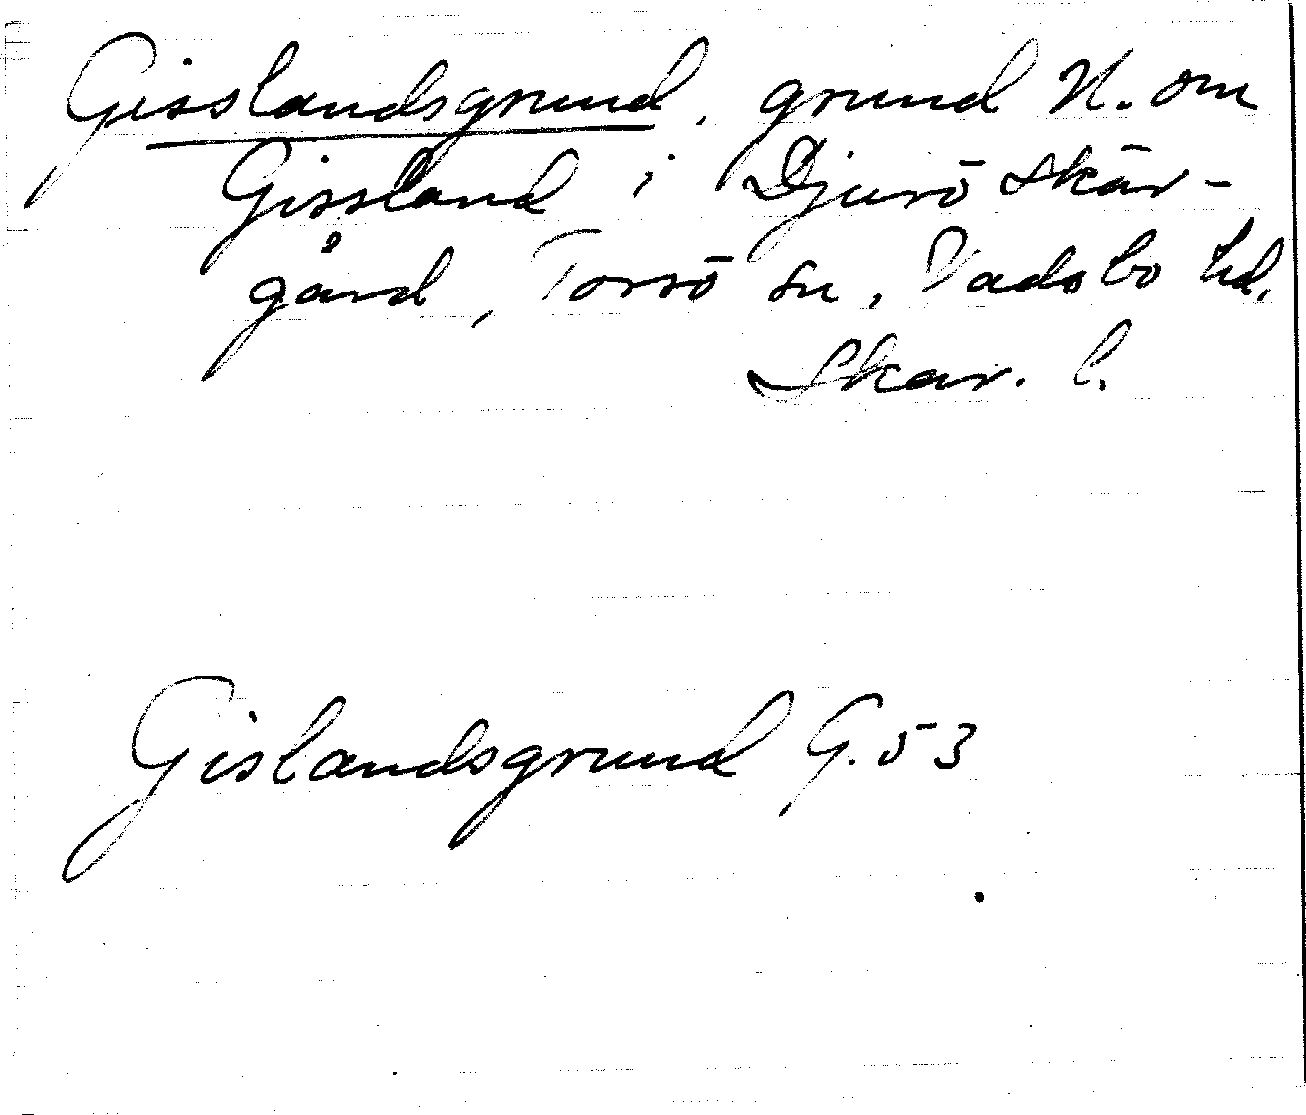 Gisslandsgrund, grund N. om
Gissland i Djurö skär-
gård, Torsö sn, Vadsbo hd.
Skar. l.
Gislandsgrund G. 53